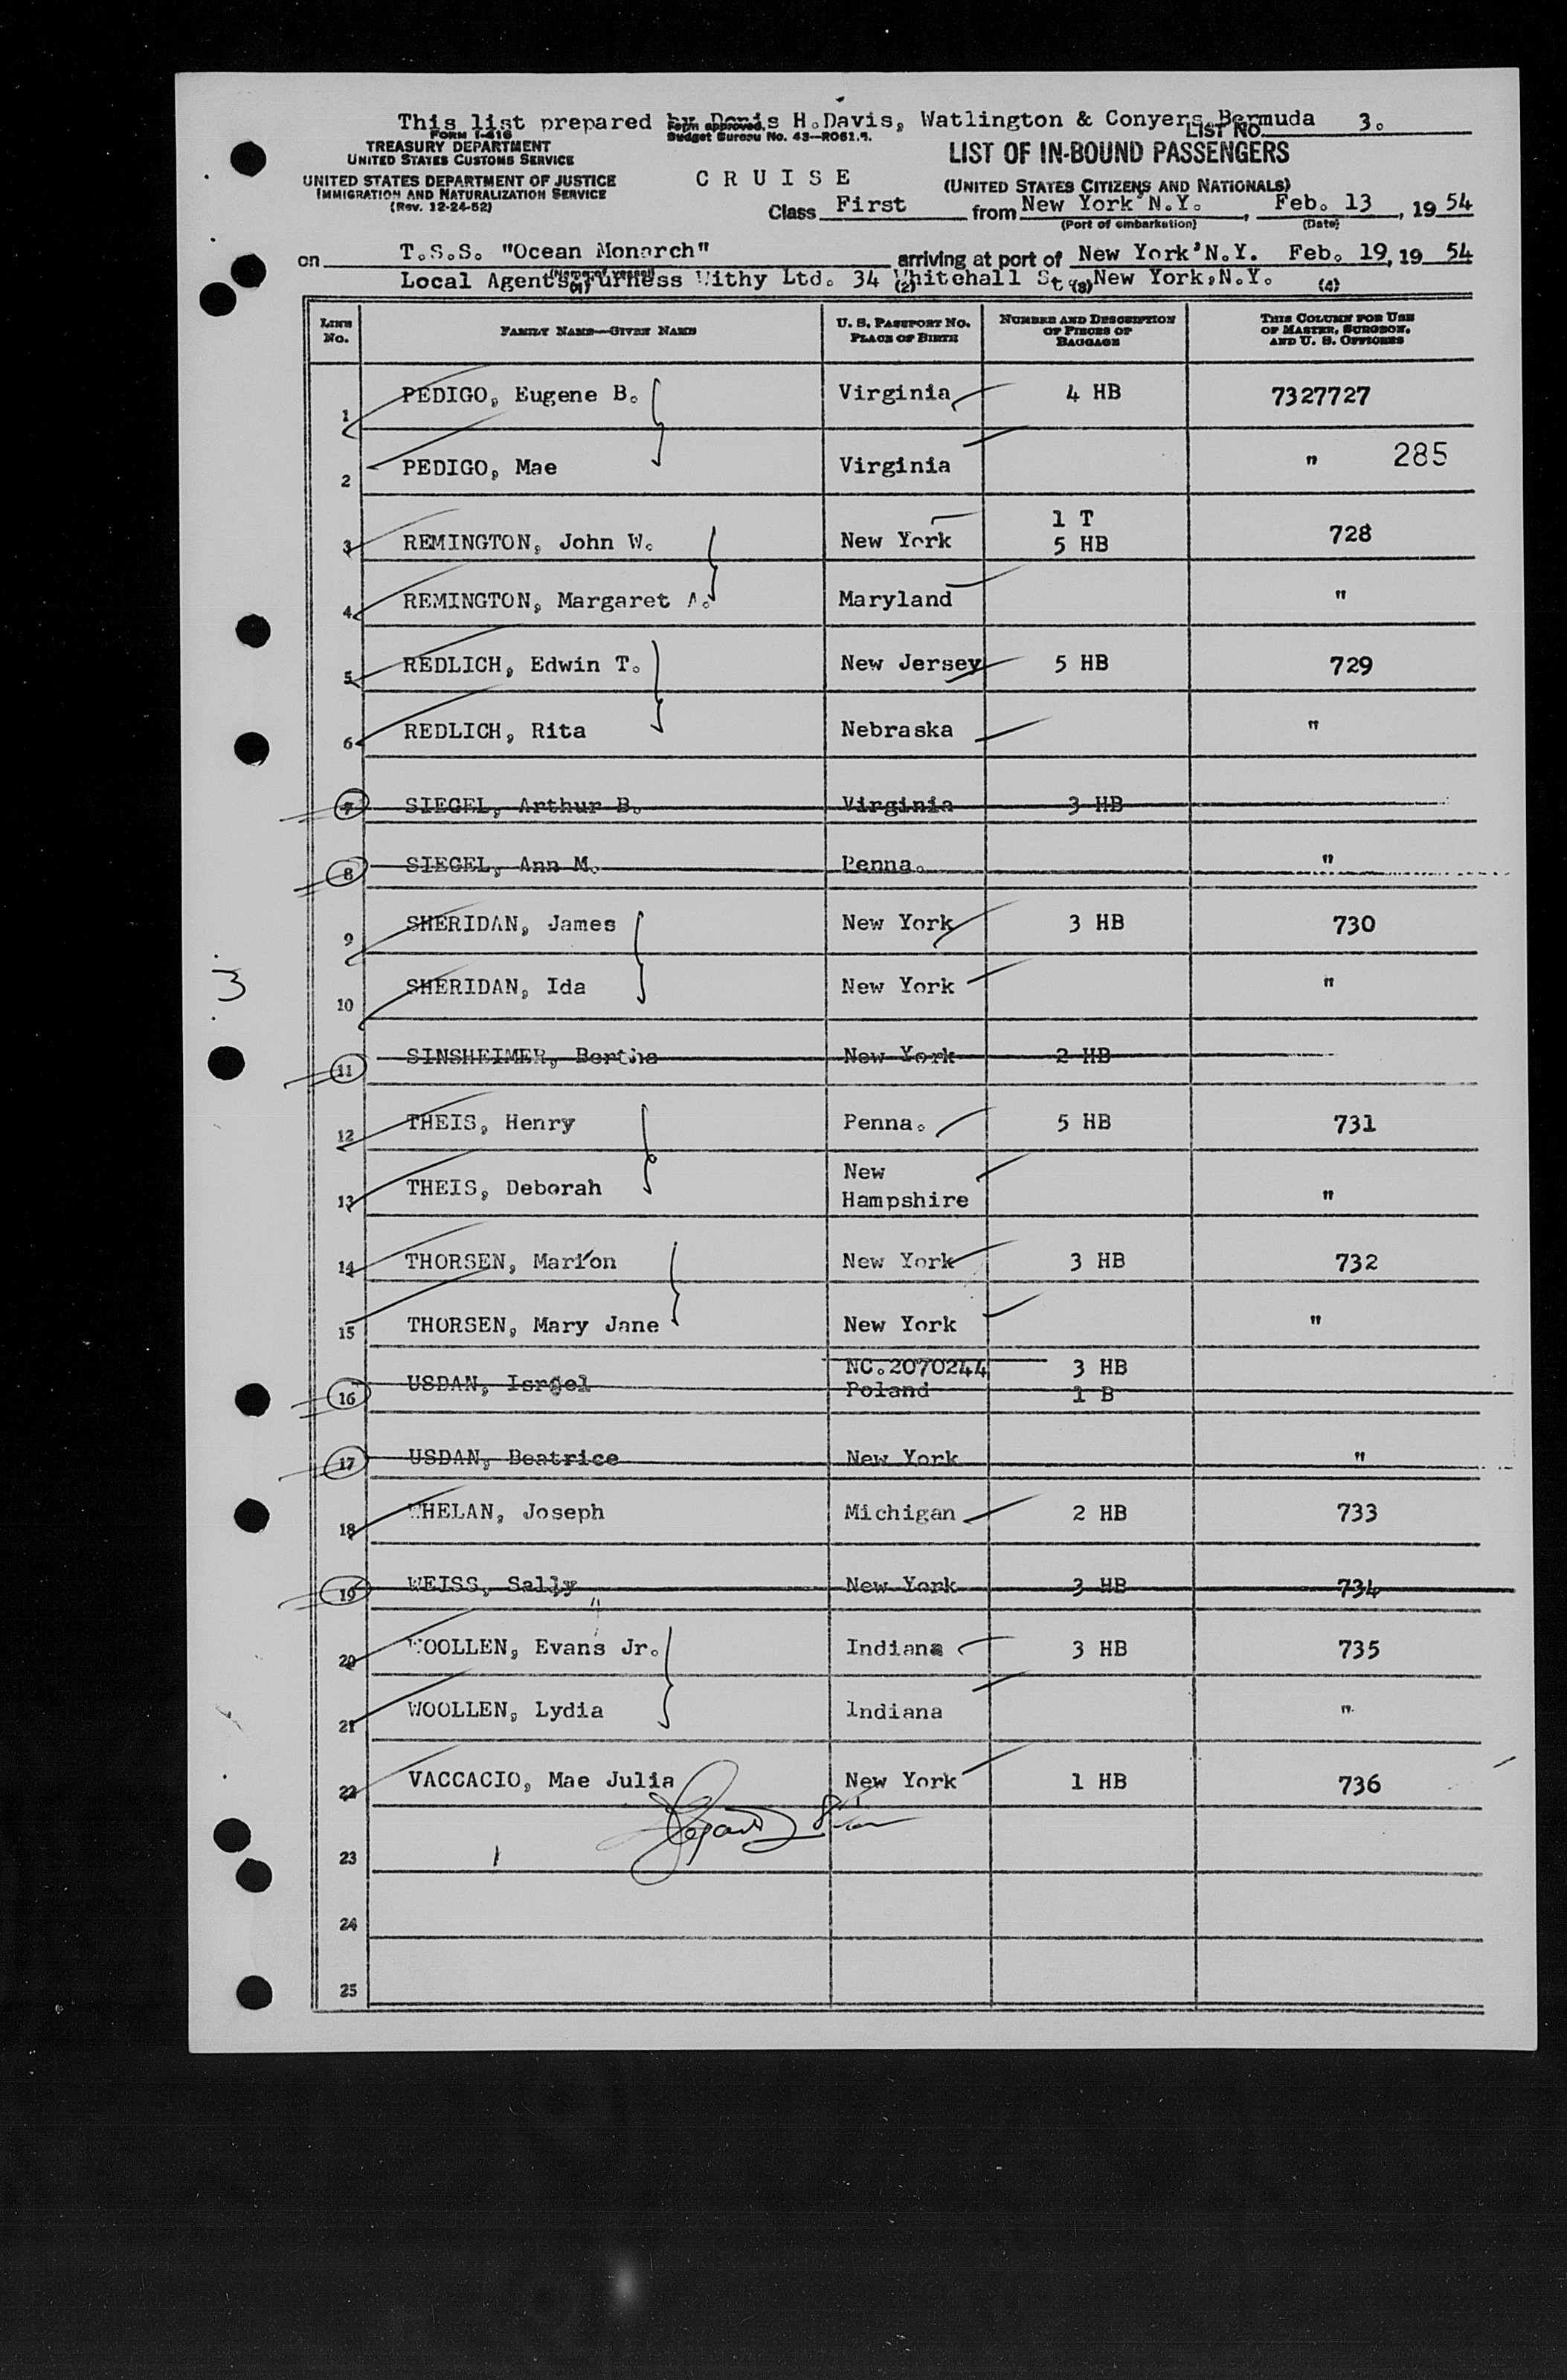 This list prepared by Doris H.Davis, Watlington & Conyers, Bermuda 3.
FORM I-416
Form approved.
Budget Bureau No. 43—R061.9.
LIST NO.
TREASURY DEPARTMENT
UNITED STATES CUSTOMS SERVICE
LIST OF IN-BOUND PASSENGERS
UNITED STATES DEPARTMENT OF JUSTICE
IMMIGRATION AND NATURALIZATION SERVICE
(Rev. 12-24-52)
CRUISE
(UNITED STATES CITIZENS AND NATIONALS)
Class First from New York N.Y., Feb. 13, 19 54
(Port of embarkation) (Date)
on T.S.S. "Ocean Monarch" arriving at port of New York N.Y. Feb. 19, 19 54
(Name of vessel)
Local Agents Furness Withy Ltd. 34 Whitehall St, New York,N.Y.
(1) (2) (3) (4)
LINE No. FAMILY NAME—GIVEN NAME U. S. PASSPORT NO. PLACE OF BIRTH NUMBER AND DESCRIPTION OF PIECES OF BAGGAGE THIS COLUMN FOR USE OF MASTER, SURGEON, AND U. S. OFFICERS
1 PEDIGO, Eugene B. Virginia 4 HB 7327727
2 PEDIGO, Mae Virginia " 285
3 REMINGTON, John W. New York 1 T 5 HB 728
4 REMINGTON, Margaret A. Maryland "
5 REDLICH, Edwin T. New Jersey 5 HB 729
6 REDLICH, Rita Nebraska "
7 SIEGEL, Arthur B. Virginia 3 HB
8 SIEGEL, Ann M. Penna. "
9 SHERIDAN, James New York 3 HB 730
10 SHERIDAN, Ida New York "
3
11 SINSHEIMER, Bertha New York 2 HB
12 THEIS, Henry Penna. 5 HB 731
13 THEIS, Deborah New Hampshire "
14 THORSEN, Marion New York 3 HB 732
15 THORSEN, Mary Jane New York "
16 USDAN, Israel NC.2070244 Poland 3 HB 1 B
17 USDAN, Beatrice New York "
18 WHELAN, Joseph Michigan 2 HB 733
19 WEISS, Sally New York 3 HB 734
20 WOOLLEN, Evans Jr. Indiana 3 HB 735
21 WOOLLEN, Lydia Indiana "
22 VACCACIO, Mae Julia New York 1 HB 736
23
24
25